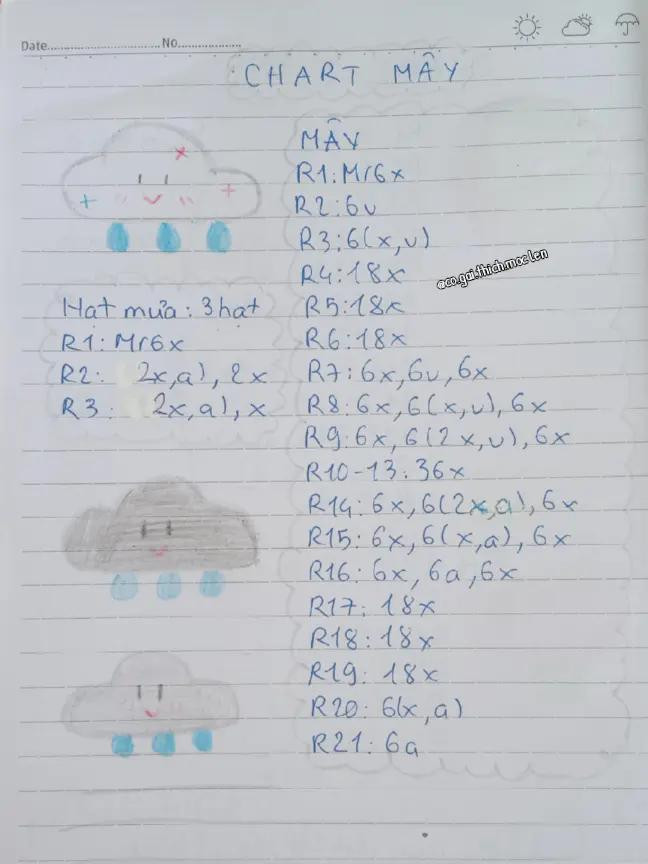 Date No
CHART MÂY
MÂY
R1: Mr6x
R2: 6v
R3: 6(x,v)
R4: 18x
@co.gai.thich.moc.len
R5: 18x
R6: 18x
R7: 6x,6v,6x
R8: 6x,6(x,v),6x
R9: 6x,6(2x,v),6x
R10-13: 36x
R14: 6x,6(2x,a),6x
R15: 6x,6(x,a),6x
R16: 6x,6a,6x
R17: 18x
R18: 18x
R19: 18x
R20: 6(x,a)
R21: 6a
Hạt mưa: 3 hạt
R1: Mr6x
R2: 2x,a), 2x
R3: 2x,a), x